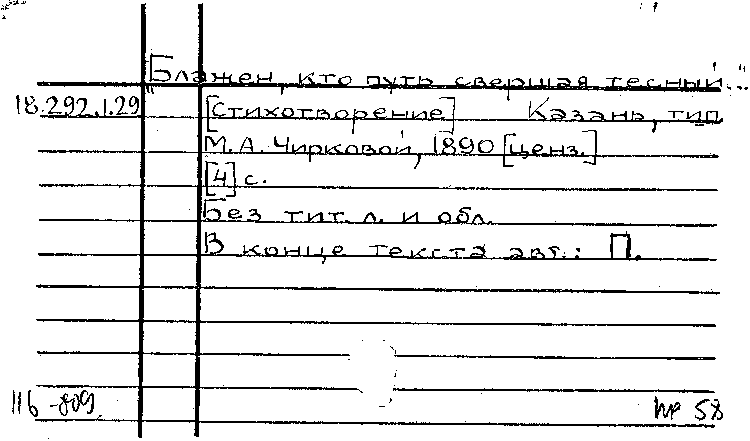 "Блажен, кто путь свершая тесный..."
18.292.1.29 [Стихотворение] Казань, тип.
М.А. Чирковой, 1890 [ценз.]
[4] с.
Без тит. л. и обл.
В конце текста авт.: П.
116-809